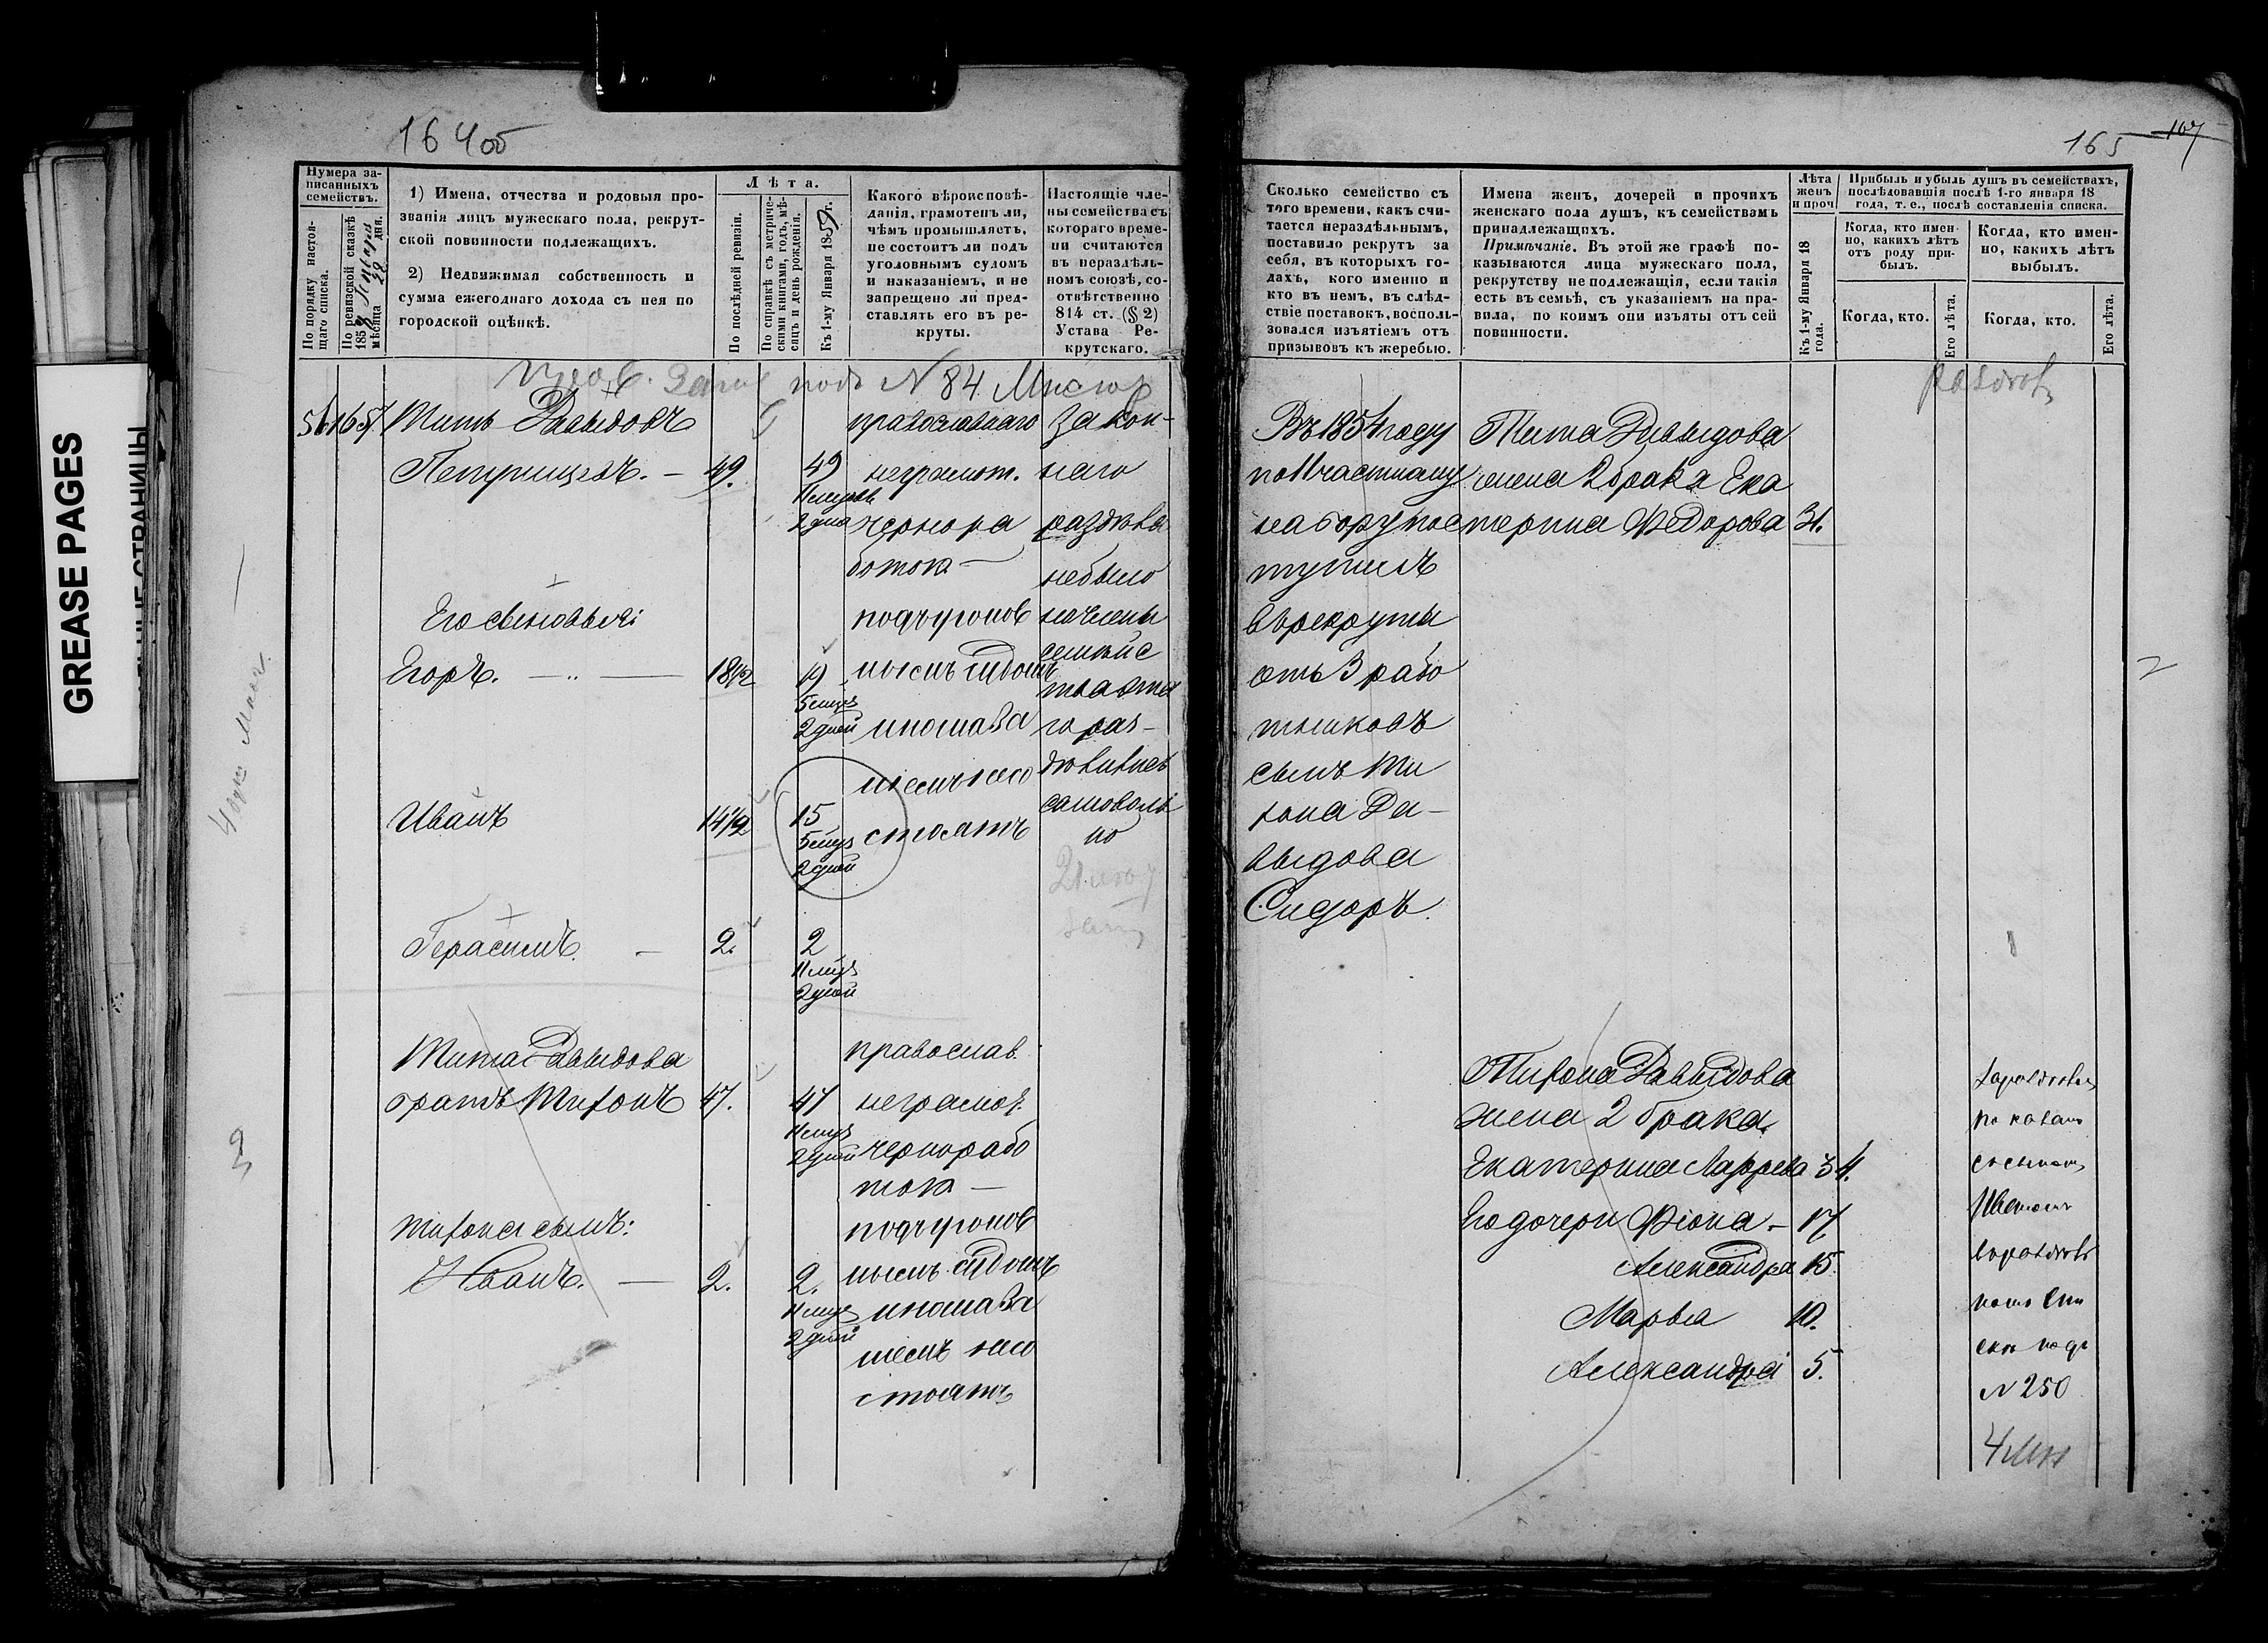 GREASE PAGES
164об
Нумера записанныхъ семействъ.
По порядку настоящаго списка.
По ревизской сказкѣ 185 мѣсяца 22 дня.
1) Имена, отчества и родовыя прозванія лицъ мужескаго пола, рекрутской повинности подлежащихъ.
2) Недвижимая собственность и сумма ежегоднаго дохода съ нея по городской оцѣнкѣ.
Лѣта.
По послѣдней ревизіи.
По справкѣ съ метрическими книгами, годъ, мѣсяцъ и день рожденія.
Къ 1-му Января 1859 г.
Какого вѣроисповѣданія, грамотенъ ли, чѣмъ промышляетъ, не состоитъ ли подъ уголовнымъ судомъ и наказаніемъ, и не запрещено ли представлять его въ рекруты.
Настоящіе члены семейства съ котораго времени считаются въ нераздѣльномъ союзѣ, соотвѣтственно 814 ст. (§ 2) Устава Рекрутскаго.
подъ N 84
165 Титъ Давыдовъ
Петрищевъ. — 49.
49
11 мцовъ
2 дня
православнаго
неграмот.
чернора
ботою —
подъ уголов
нымъ судомъ
и показа
ніемъ несо
стоятъ
Закон-
наго
раздѣла
небыло
но члены
семѣйс
тва отъ
раз-
дѣлились
самоволь
но
Его сыновья:
Егоръ. — 18 1/2
19
5 мцовъ
2 дней
Иванъ 14 1/2
15
5 мцъ
2 дней
Герасимъ. — 2.
2
11 мцъ
2 дней
Тита Давыдова
братъ Тихонъ 47.
47
11 мцъ
2 дней
православ.
неграмот.
чернорабо
тою —
подъ уголов
нымъ судомъ
и показа
ніемъ несо
стоятъ
Тихона сынъ:
Иванъ. — 2.
2.
11 мцъ
2 дней
165 107
Сколько семейство съ того времени, какъ считается нераздѣльнымъ, поставило рекрутъ за себя, въ которыхъ годахъ, кого именно и кто въ немъ, въ слѣдствіе поставокъ, воспользовался изъятіемъ отъ призывовъ къ жеребью.
Имена женъ, дочерей и прочихъ женскаго пола душъ, къ семействамъ принадлежащихъ.
Примѣчаніе. Въ этой же графѣ показываются лица мужескаго пола, рекрутству не подлежащія, если такія есть въ семьѣ, съ указаніемъ на правила, по коимъ они изъяты отъ сей повинности.
Лѣта женъ и проч
Къ 1-му Января 18 года.
Прибыль и убыль душъ въ семействахъ, послѣдовавшія послѣ 1-го января 18 года, т. е., послѣ составленія списка.
Когда, кто именно, какихъ лѣтъ отъ роду прибылъ.
Когда, кто именно, какихъ лѣтъ выбылъ.
Когда, кто.
Его лѣта.
Когда, кто.
Его лѣта.
Въ 1854 году
по 11 частному
набору пос
тупилъ
въ рекруты
отъ 3 рабо
тниковъ
сынъ Ти
хона Да-
выдова
Сидоръ.
Тита Давыдова
жена 2 брака Ека
терина Федорова 31.
Тихона Давыдова
жена 2 брака
Екатерина 34.
Его дочери Фіона — 17
Александра 15
Марья 10.
Александра 5.
N 250